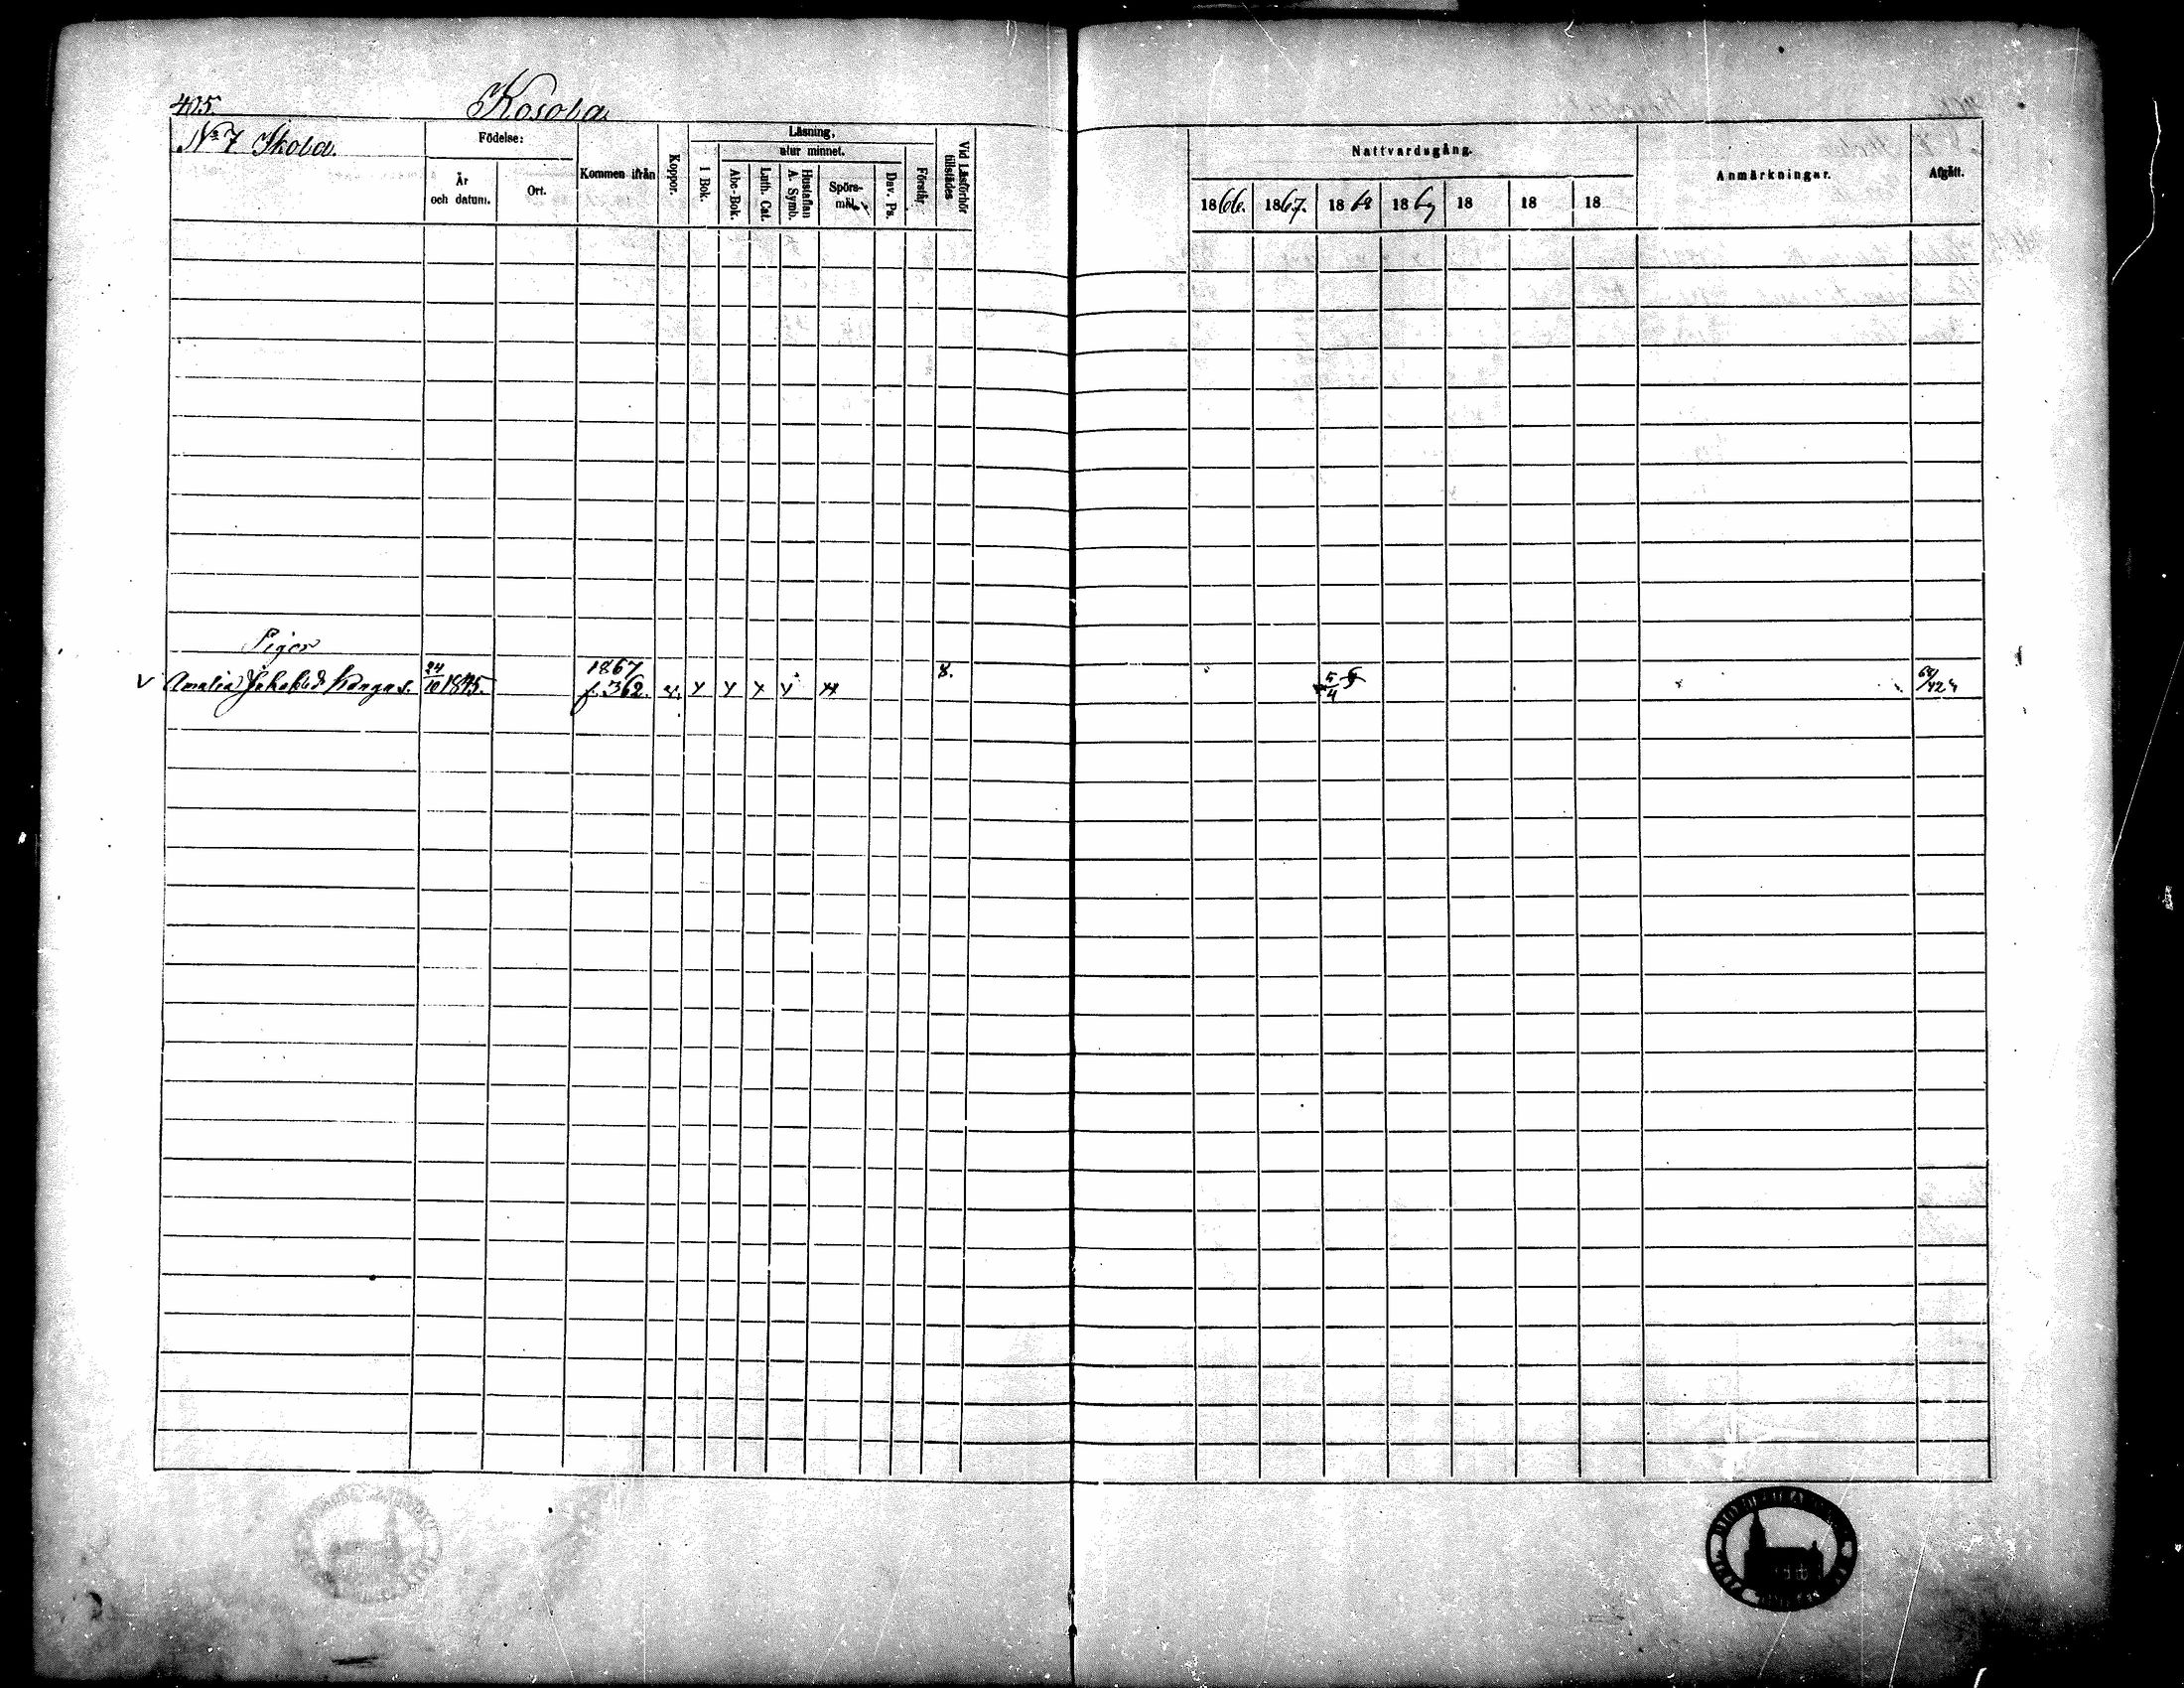 405.
Kosoba.
No 7 Skoba.
Födelse:
År och datum.
Ort.
Kommen ifrån
Koppor.
Läsning,
I Bok.
utur minnet.
Abc-Bok.
Luth. Cat.
Hustaflan A. Symb.
Spörs-mål.
Dav. Ps.
Förstår.
Vid Läsförhör tillstädes
Nattvardsgång.
1866. 1867. 1868 1869 18 18 18
Anmärkningar.
Afgått.
Pigor
1867 8.
v Amalia Jakobsd. Kangas. 24/10 1845. f. 362. x. y y y y 5/4 68/424